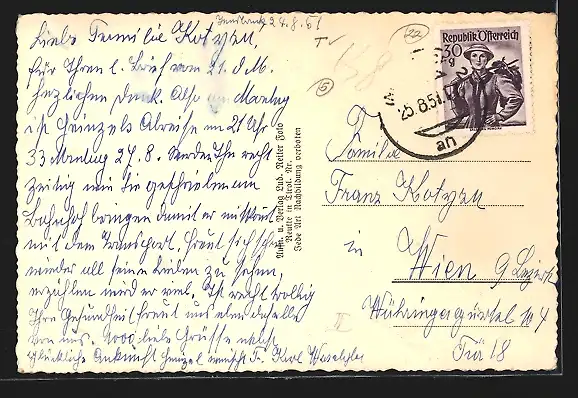 Innsbruck 24.8.51
Liebe Familie Kotyza,
für Ihren l. Brief vom 21. d M.
herzlichen Dank. Also am Montag
ist Heinzels Abreise um 21 Uhr
33 Montag 27.8. Werde Ihn recht
zeitig wie Sie geschrieben am
Bahnhof bringen damit er mitkommt
mit dem Transport. Freut sich schon
wieder all seine Lieben zu sehen,
erzählen wird er viel. Ist recht
Ihre Gesundheit freut uns
von uns. 1000 liebe Grüsse nebst
glückliche Ankunft Heinzel wünscht Fr. Karl
Aufn. u. Verlag Lud. Reiter Foto
Reutte in Tirol. Nr.
Jede Art Nachbildung verboten
22
5
Republik Österreich
30
g
25.8.51
an
Familie
Franz Kotyza
in
Wien 9 Bezirk
Währingergürtel No 4
Tür 18